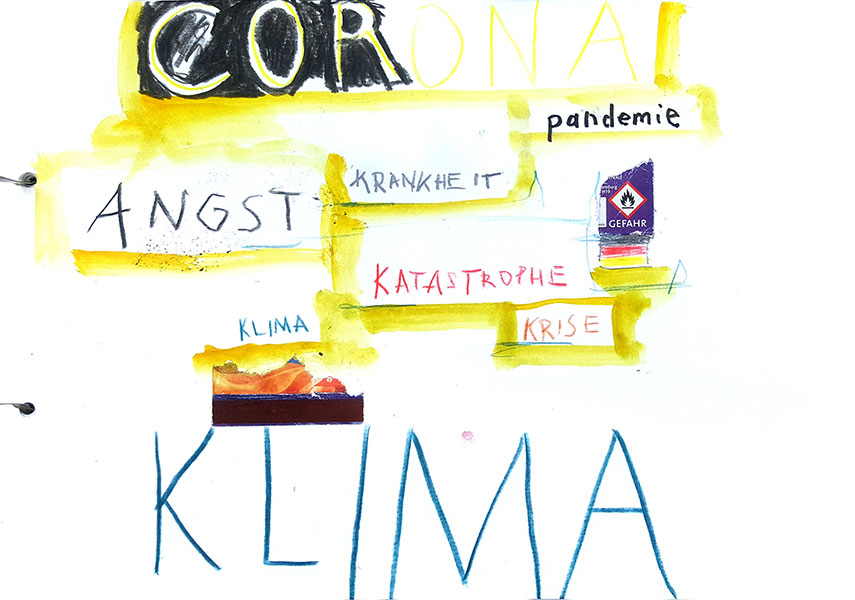 CORONA
pandemie
KRANKHEIT
ANGST
GEFAHR
KATASTROPHE
KRISE
KLIMA
KLIMA